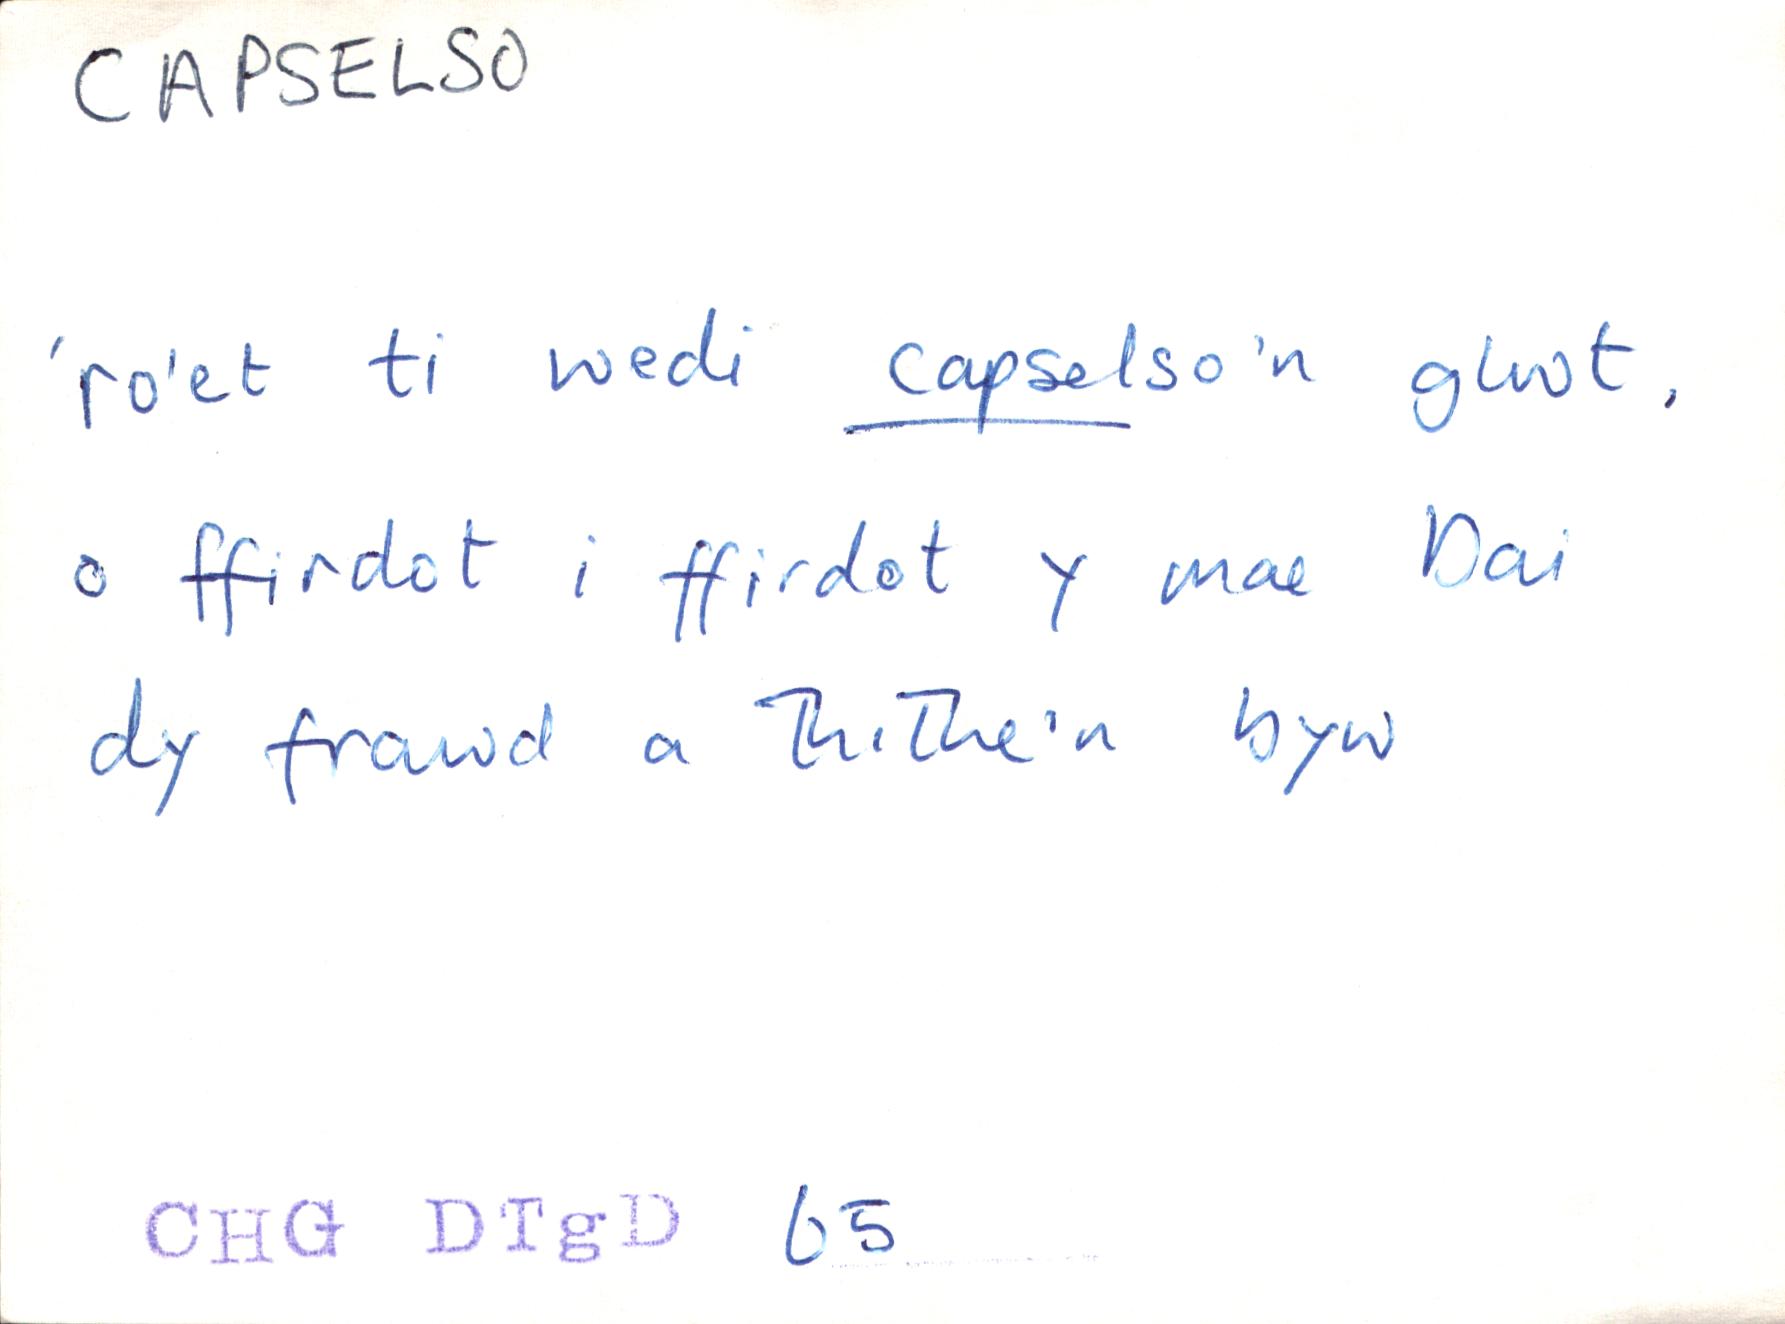 CAPSELSO
'ro'et ti wedi capselso'n glwt,
o ffirdot i ffirdot y mae Dai
dy frawd a Thithe'n byw
CHG DTgD 65